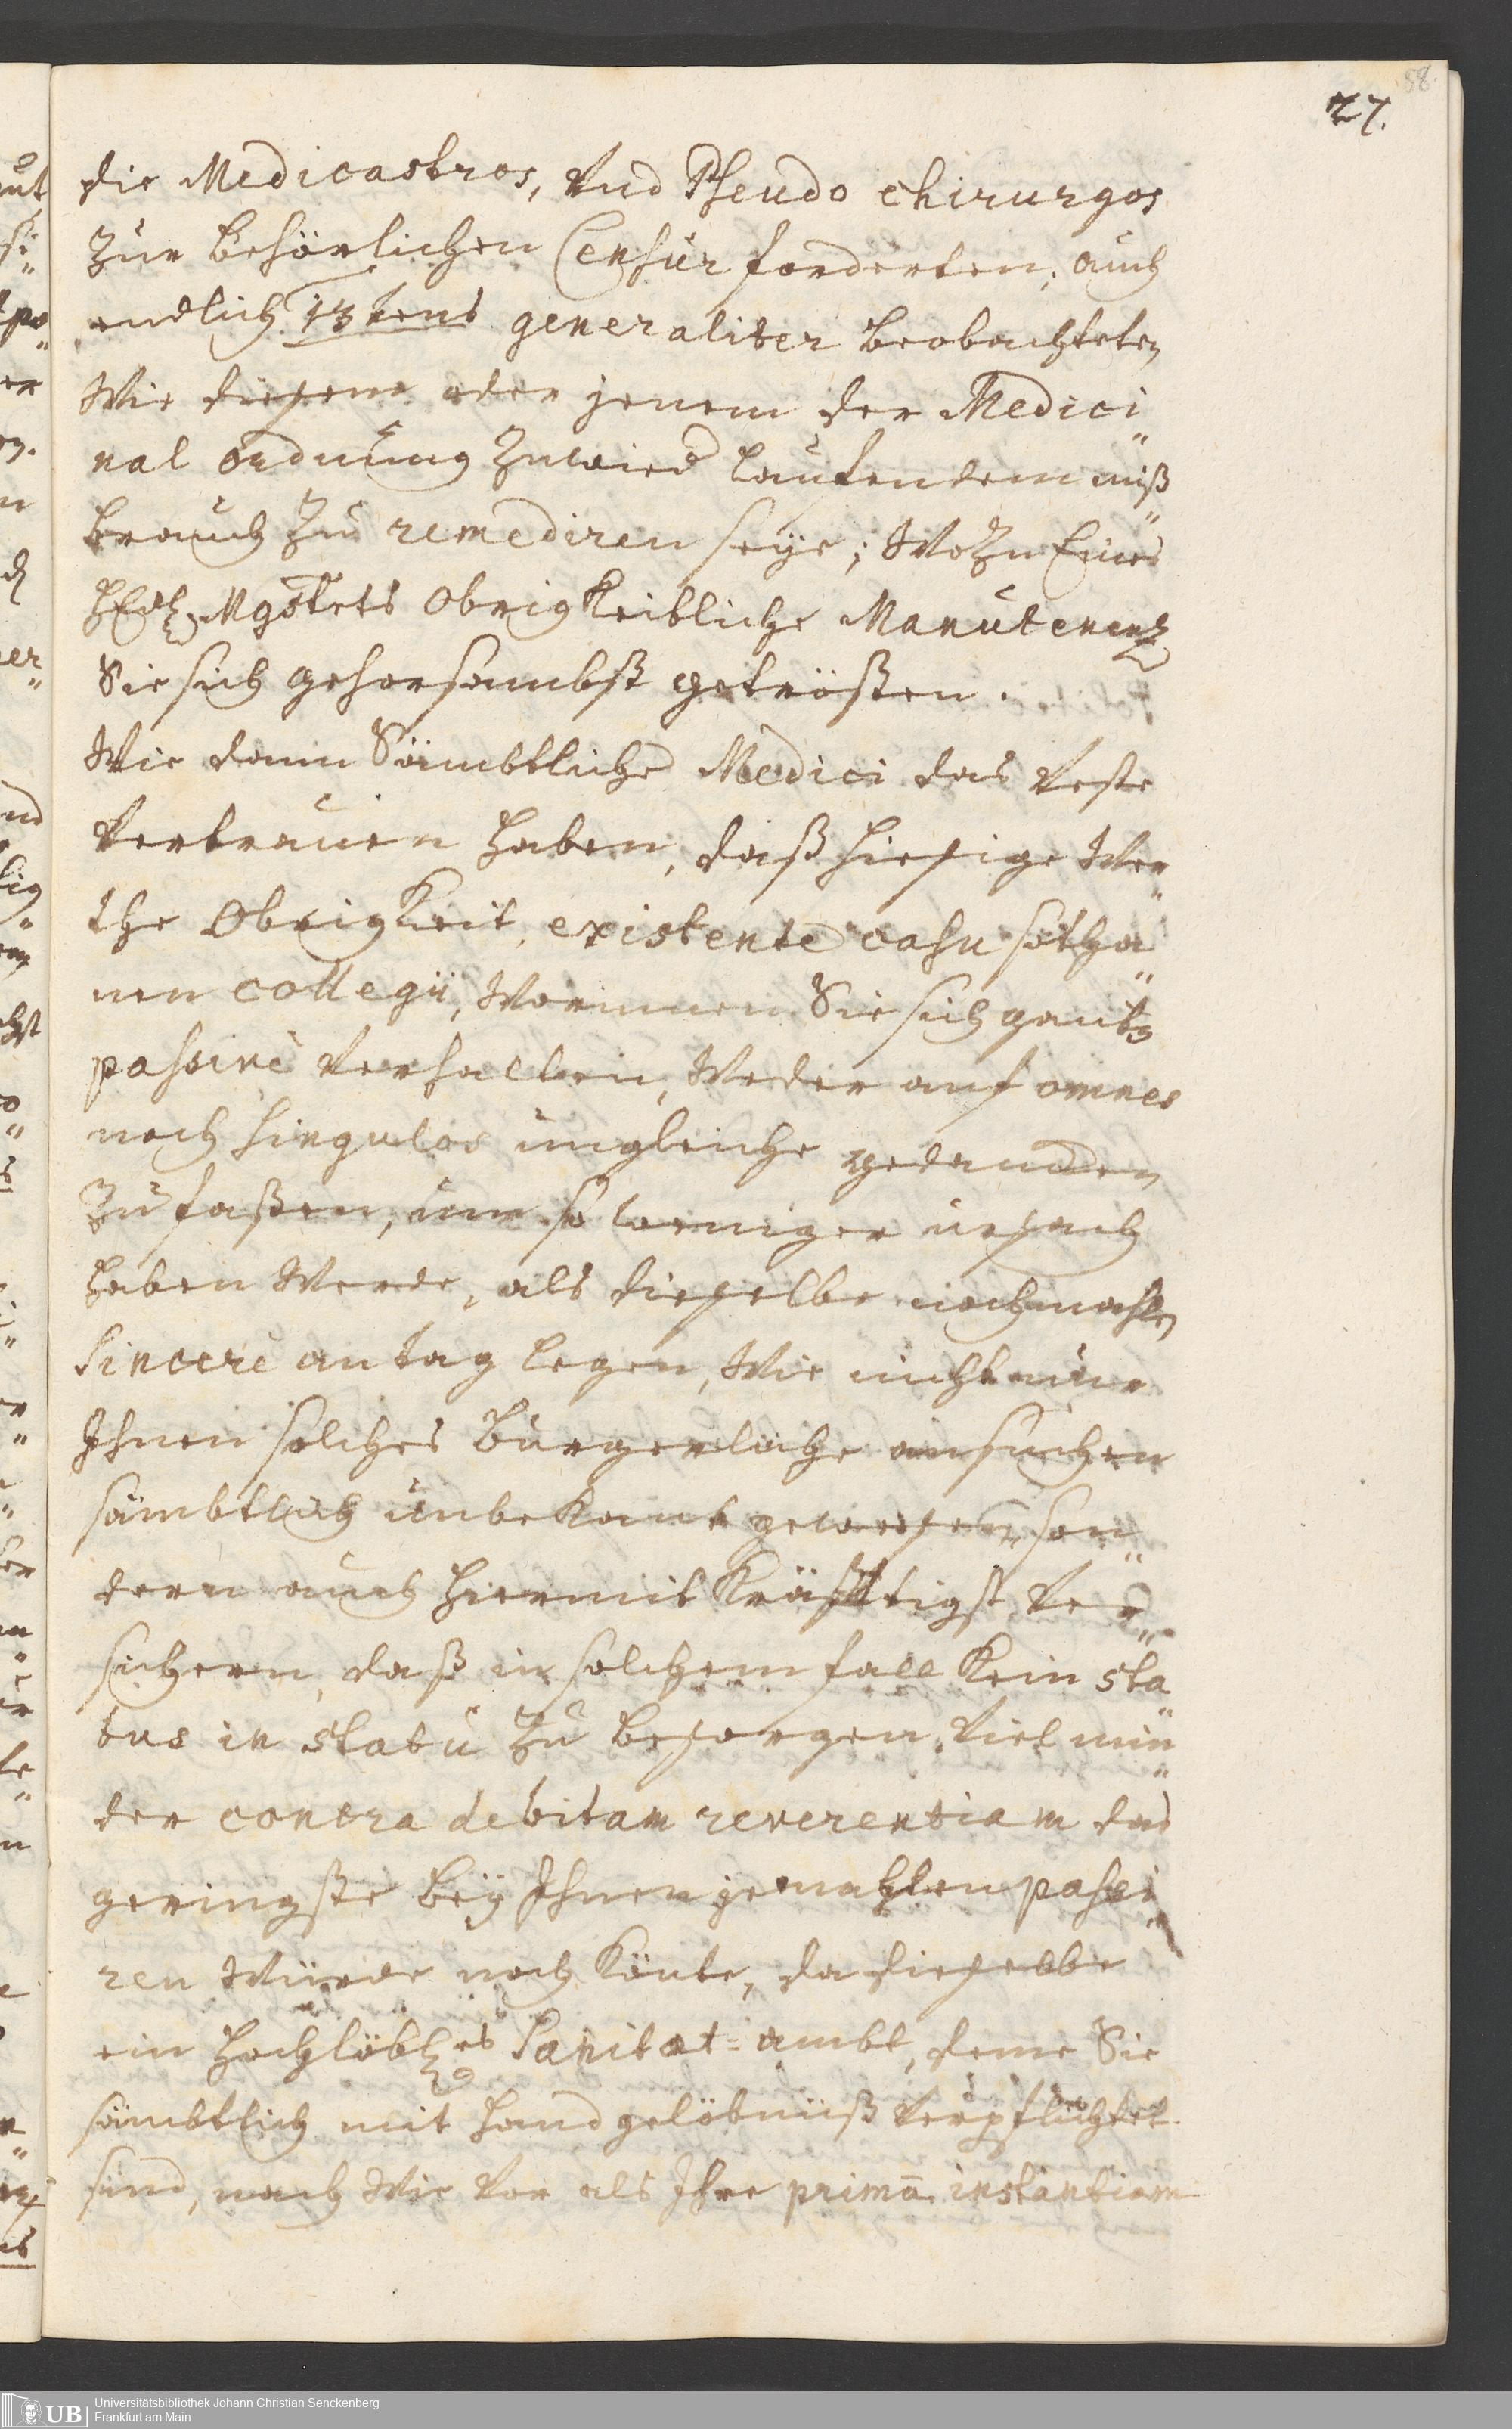 58.
27.
die Medicastros, Vnd Pseudo chirurgos
Zur behörlichen Censur forderten; auch
endlich 13tens generaliter beobachteten
Wie diesem oder jenem der Medici„
nal ordnung Zuwied lauffendem miß„
brauch Zu remediren seÿe; Wozu Eines
Mgstrts Obrigkeitliche Manutenentz
Sie sich gehorsambst getrösten.
Wie dann Sämbtliche Medici das Veste
Vertrauen haben, daß hiesige Wer„
the Obrigkeit, existente casu sotha„
nen collegii, Worinnen Sie sich gantz
passive Verhalten, Weder auf omnes
noch singulos ungleiche gedancken
Zu faßen, um so weniger ursach
haben Werde, als dieselbe nochmahls
sincere an tag legen, Wie nicht nur
Ihnen solches Bürgerliche ansuchen
sämbtlich unbekant gewesen, son„
dern auch hiermit kräfftigst Ver„
sichern, daß in solchem fall kein sta„
tus in statu Zu besorgen, Viel min„
der contra debitam reverentiam das
geringste beÿ Ihnen jemahlen passi„
ren Würde noch könte, da dieselbe
ein hochlöbl.es Sanitæt-ambt, deme Sie
sämbtlich mit hand gelöbnüß Verpflichtet
sind, nach Wie Vor als Ihre primā instantiam
UB
Universitätsbibliothek Johann Christian Senckenberg
Frankfurt am Main